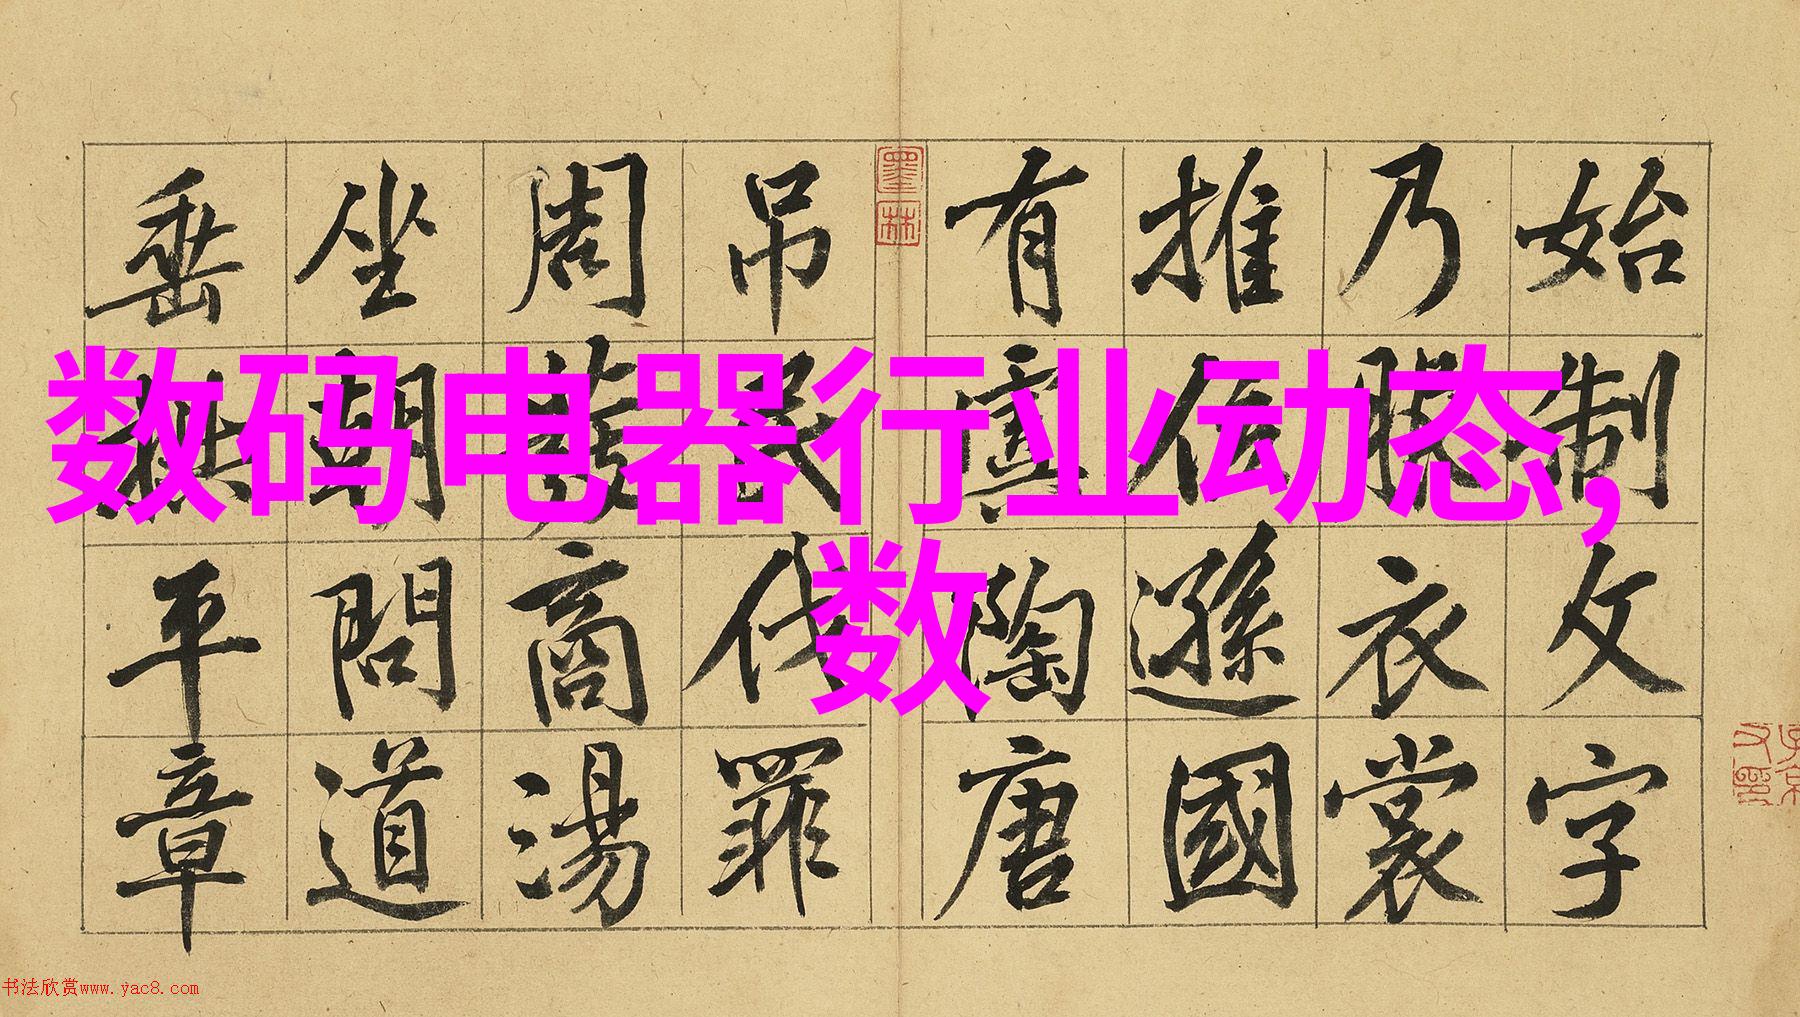 数码电器行业动态,
数
始制文字
乃服衣裳
推位遜國
有虞陶唐
墨林
吊民伐罪
周發商湯
坐朝問道
垂拱平章
书法欣赏www.yac8.com